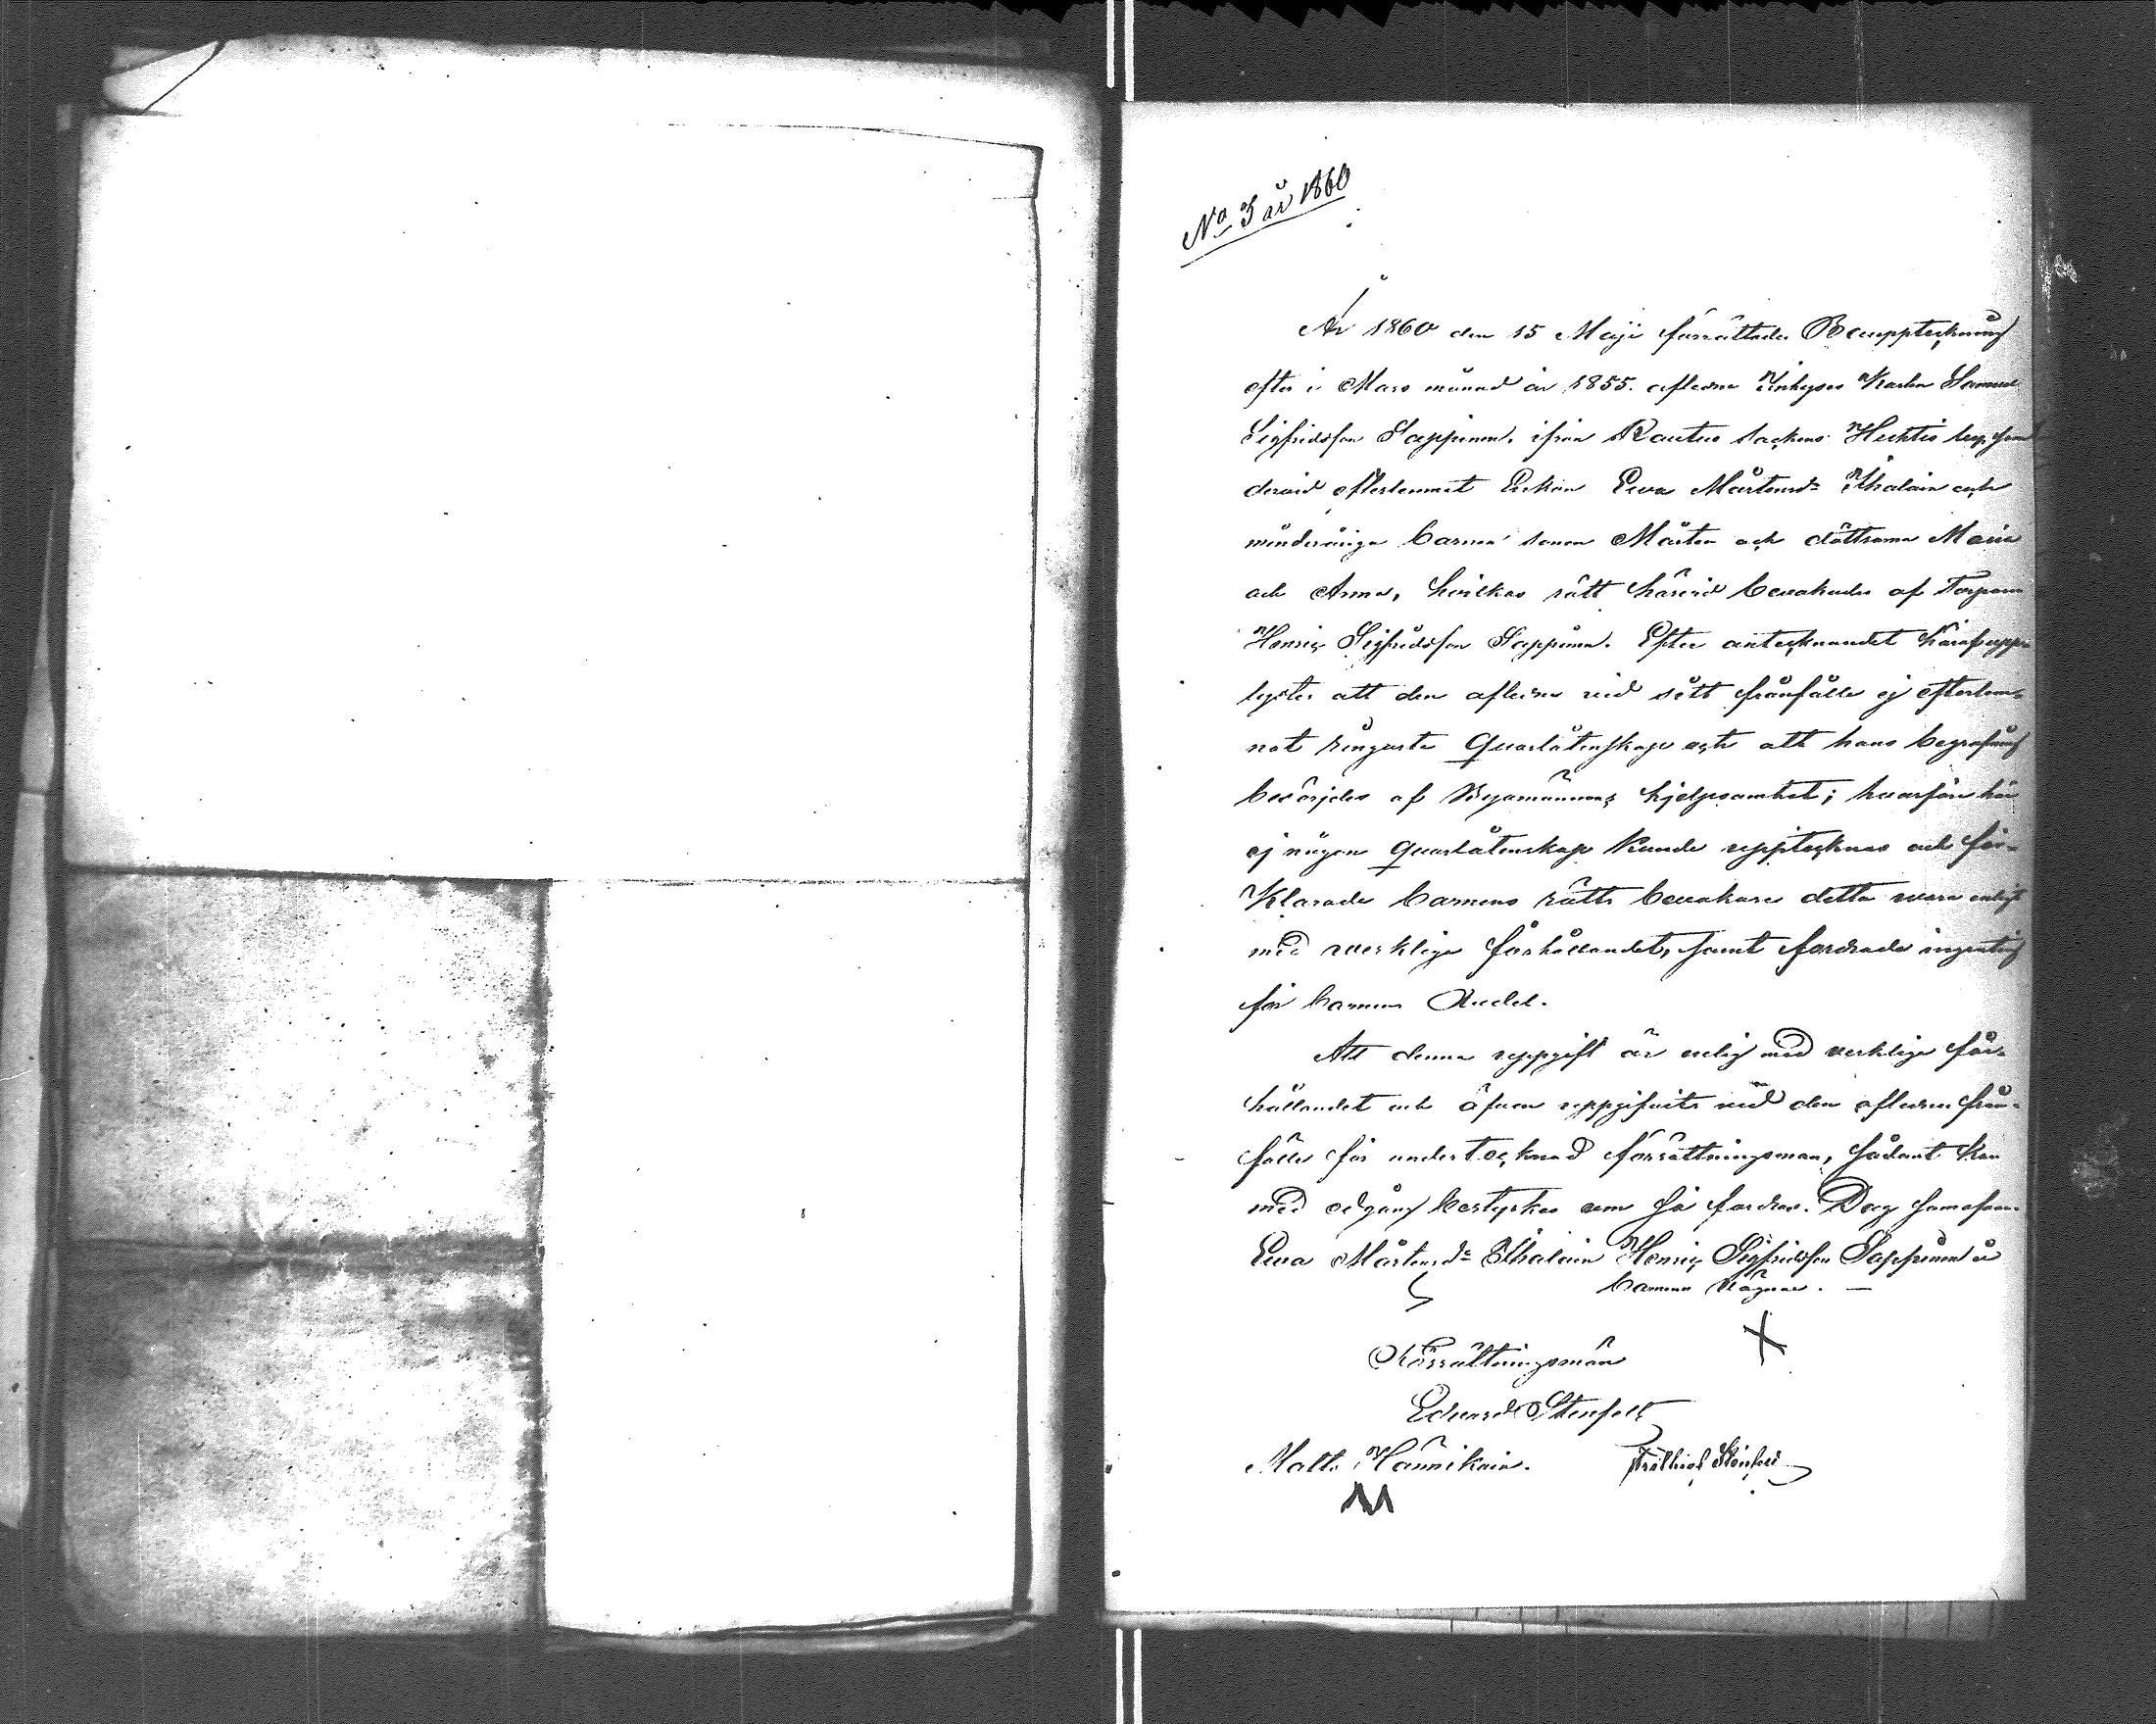 No 3 år 1860
År 1860 den 15 Maji förrättades Bouppteckning
efter i Mars månad år 1855. aflidne Inhyses Karlen Samuel
Sigfridsson Sappinen, ifrån Rautus Sockens Huhtis by, som
dervid efterlemnat Enkan Ewa Mårtensdr Ihalain och
minderåriga barnen sonen Mårten och döttrarna Maria
och Anna, hvilkas rätt härvid bevakades af Torparen
Henric Sigfridsson Sappinen. Efter antecknandet häraf upp-
lystes att den aflidne vid sitt frånfälle ej efterlem-
nat ringaste Quarlåtenskap och att hans begrafning
besörjdes af Byamännens hjelpsamhet; hvarföre här
ej någon quarlåtenskap kunde upptecknas och för-
klarade barnens rätts bevakare detta vara enligt
med verkliga förhållandet, samt fordrade ingenting
för barnens Andel.
Att denna uppgift är enlig med verkliga för-
hållandet och äfven uppgifvits vid den aflidnes från-
fälle för undertecknad förrättningsman, sådant kan
med edgång bestyrkas om så fordras. Dag som ofvan.
Ewa Mårtensdr Ihalain Henric Sigfridsson Sappinen å
barnens vägnar.
Förrättningsmän
Eduard Stenfelt
Matts Hännikäin. Frithiof Stenfelt